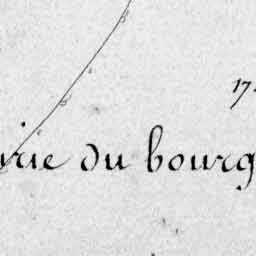 17
urie du bourg